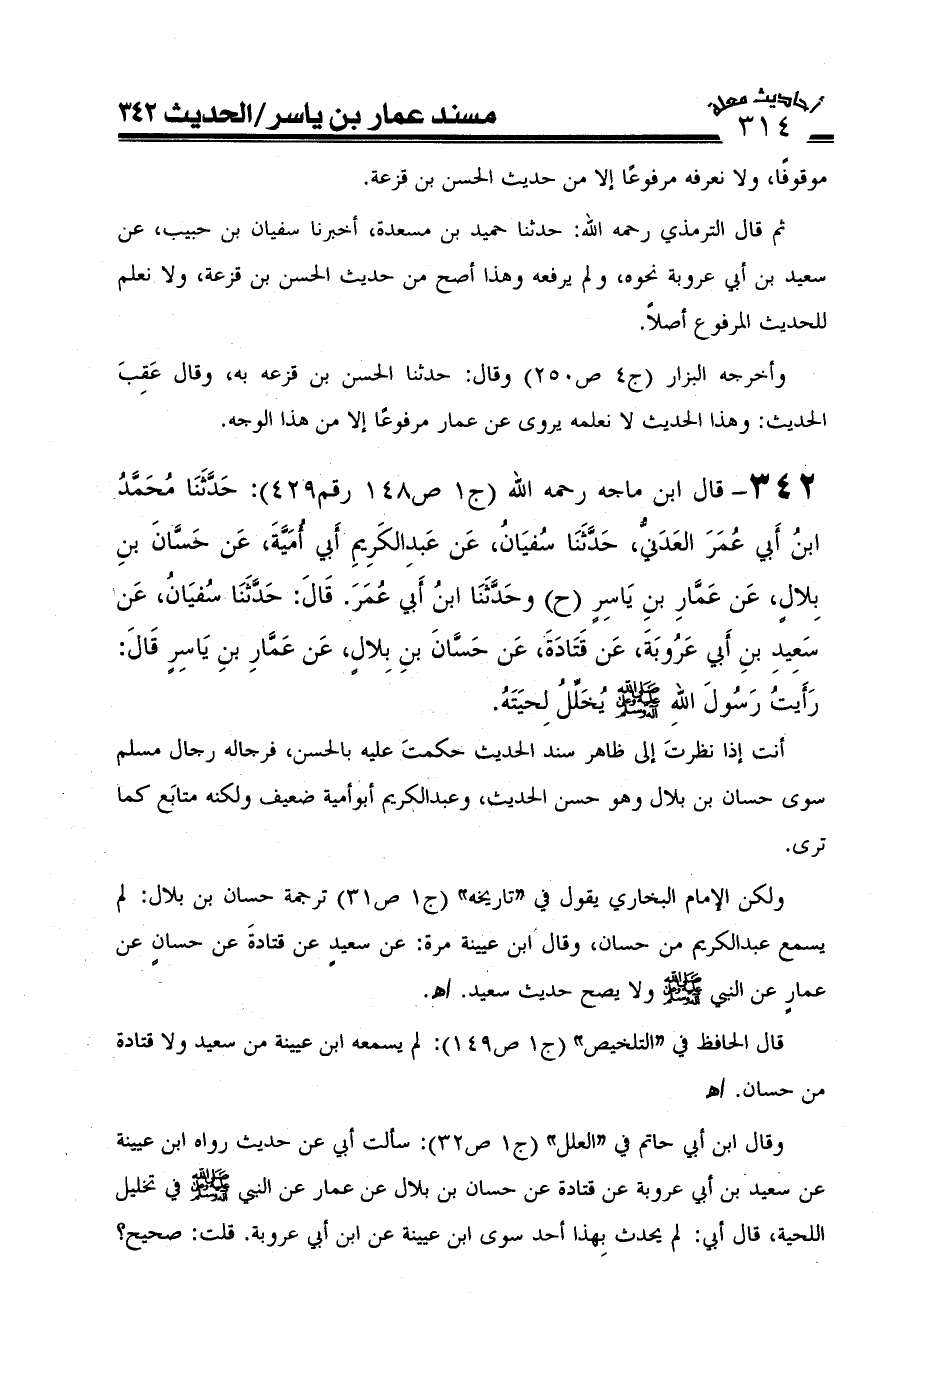 أحاديث معلة
٣١٤
مسند عمار بن ياسر/الحديث ٣٤٢
موقوفًا، ولا نعرفه مرفوعًا إلا من حديث الحسن بن قزعة.
ثم قال الترمذي رحمه الله: حدثنا حميد بن مسعدة، أخبرنا سفيان بن حبيب، عن
سعيد بن أبي عروبة نحوه، ولم يرفعه وهذا أصح من حديث الحسن بن قزعة، ولا نعلم
للحديث المرفوع أصلاً.
وأخرجه البزار (ج٤ ص٢٥٠) وقال: حدثنا الحسن بن قزعه به، وقال عَقِبَ
الحديث: وهذا الحديث لا نعلمه يروى عن عمار مرفوعًا إلا من هذا الوجه.
٣٤٢- قال ابن ماجه رحمه الله (ج١ ص١٤٨ رقم٤٢٩): حَدَّثَنَا مُحَمَّدُ
ابنُ أَبي عُمَرَ العَدَنيُّ، حَدَّثَنَا سُفيَانُ، عَن عَبدِالكَرِيمِ أَبي أُمَيَّةَ، عَن حَسَّانَ بنِ
بِلالٍ، عَن عَمَّارِ بنِ يَاسِرٍ (ح) وحَدَّثَنَا ابنُ أَبي عُمَرَ. قَالَ: حَدَّثَنَا سُفيَانُ، عَن
سَعِيدِ بنِ أَبي عَرُوبَةَ، عَن قَتَادَةَ، عَن حَسَّانَ بنِ بِلالٍ، عَن عَمَّارِ بنِ يَاسِرٍ قَالَ:
رَأَيتُ رَسُولَ اللهِ ﷺ يُخَلِّلُ لِحيَتَهُ.
أنت إذا نظرتَ إلى ظاهر سند الحديث حكمتَ عليه بالحسن، فرجاله رجال مسلم
سوى حسان بن بلال وهو حسن الحديث، وعبدالكريم أبوأمية ضعيف ولكنه متابَع كما
ترى.
ولكن الإمام البخاري يقول في "تاريخه" (ج١ ص٣١) ترجمة حسان بن بلال: لم
يسمع عبدالكريم من حسان، وقال ابن عيينة مرة: عن سعيدٍ عن قتادةَ عن حسانٍ عن
عمارٍ عن النبي ﷺ ولا يصح حديث سعيد. اهـ.
قال الحافظ في "التلخيص" (ج١ ص١٤٩): لم يسمعه ابن عيينة من سعيد ولا قتادة
من حسان. اهـ
وقال ابن أبي حاتم في "العلل" (ج١ ص٣٢): سألت أبي عن حديث رواه ابن عيينة
عن سعيد بن أبي عروبة عن قتادة عن حسان بن بلال عن عمار عن النبي ﷺ في تخليل
اللحية، قال أبي: لم يحدث بهذا أحد سوى ابن عيينة عن ابن أبي عروبة. قلت: صحيح؟